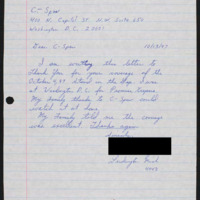 C-Span
400 N. Capitol St. N.W. Suite 650
Washington D.C. 20001
Dear C-Span
I am writing this letter to
thank you for your coverage of the
October 4, 97 Stand in the Gap. I was
at Washington D.C. for Promise Keepers.
My family thanks to C-Span could
watch it at home.
My family told me the coverage
was excellent. Thanks again
Sincerely